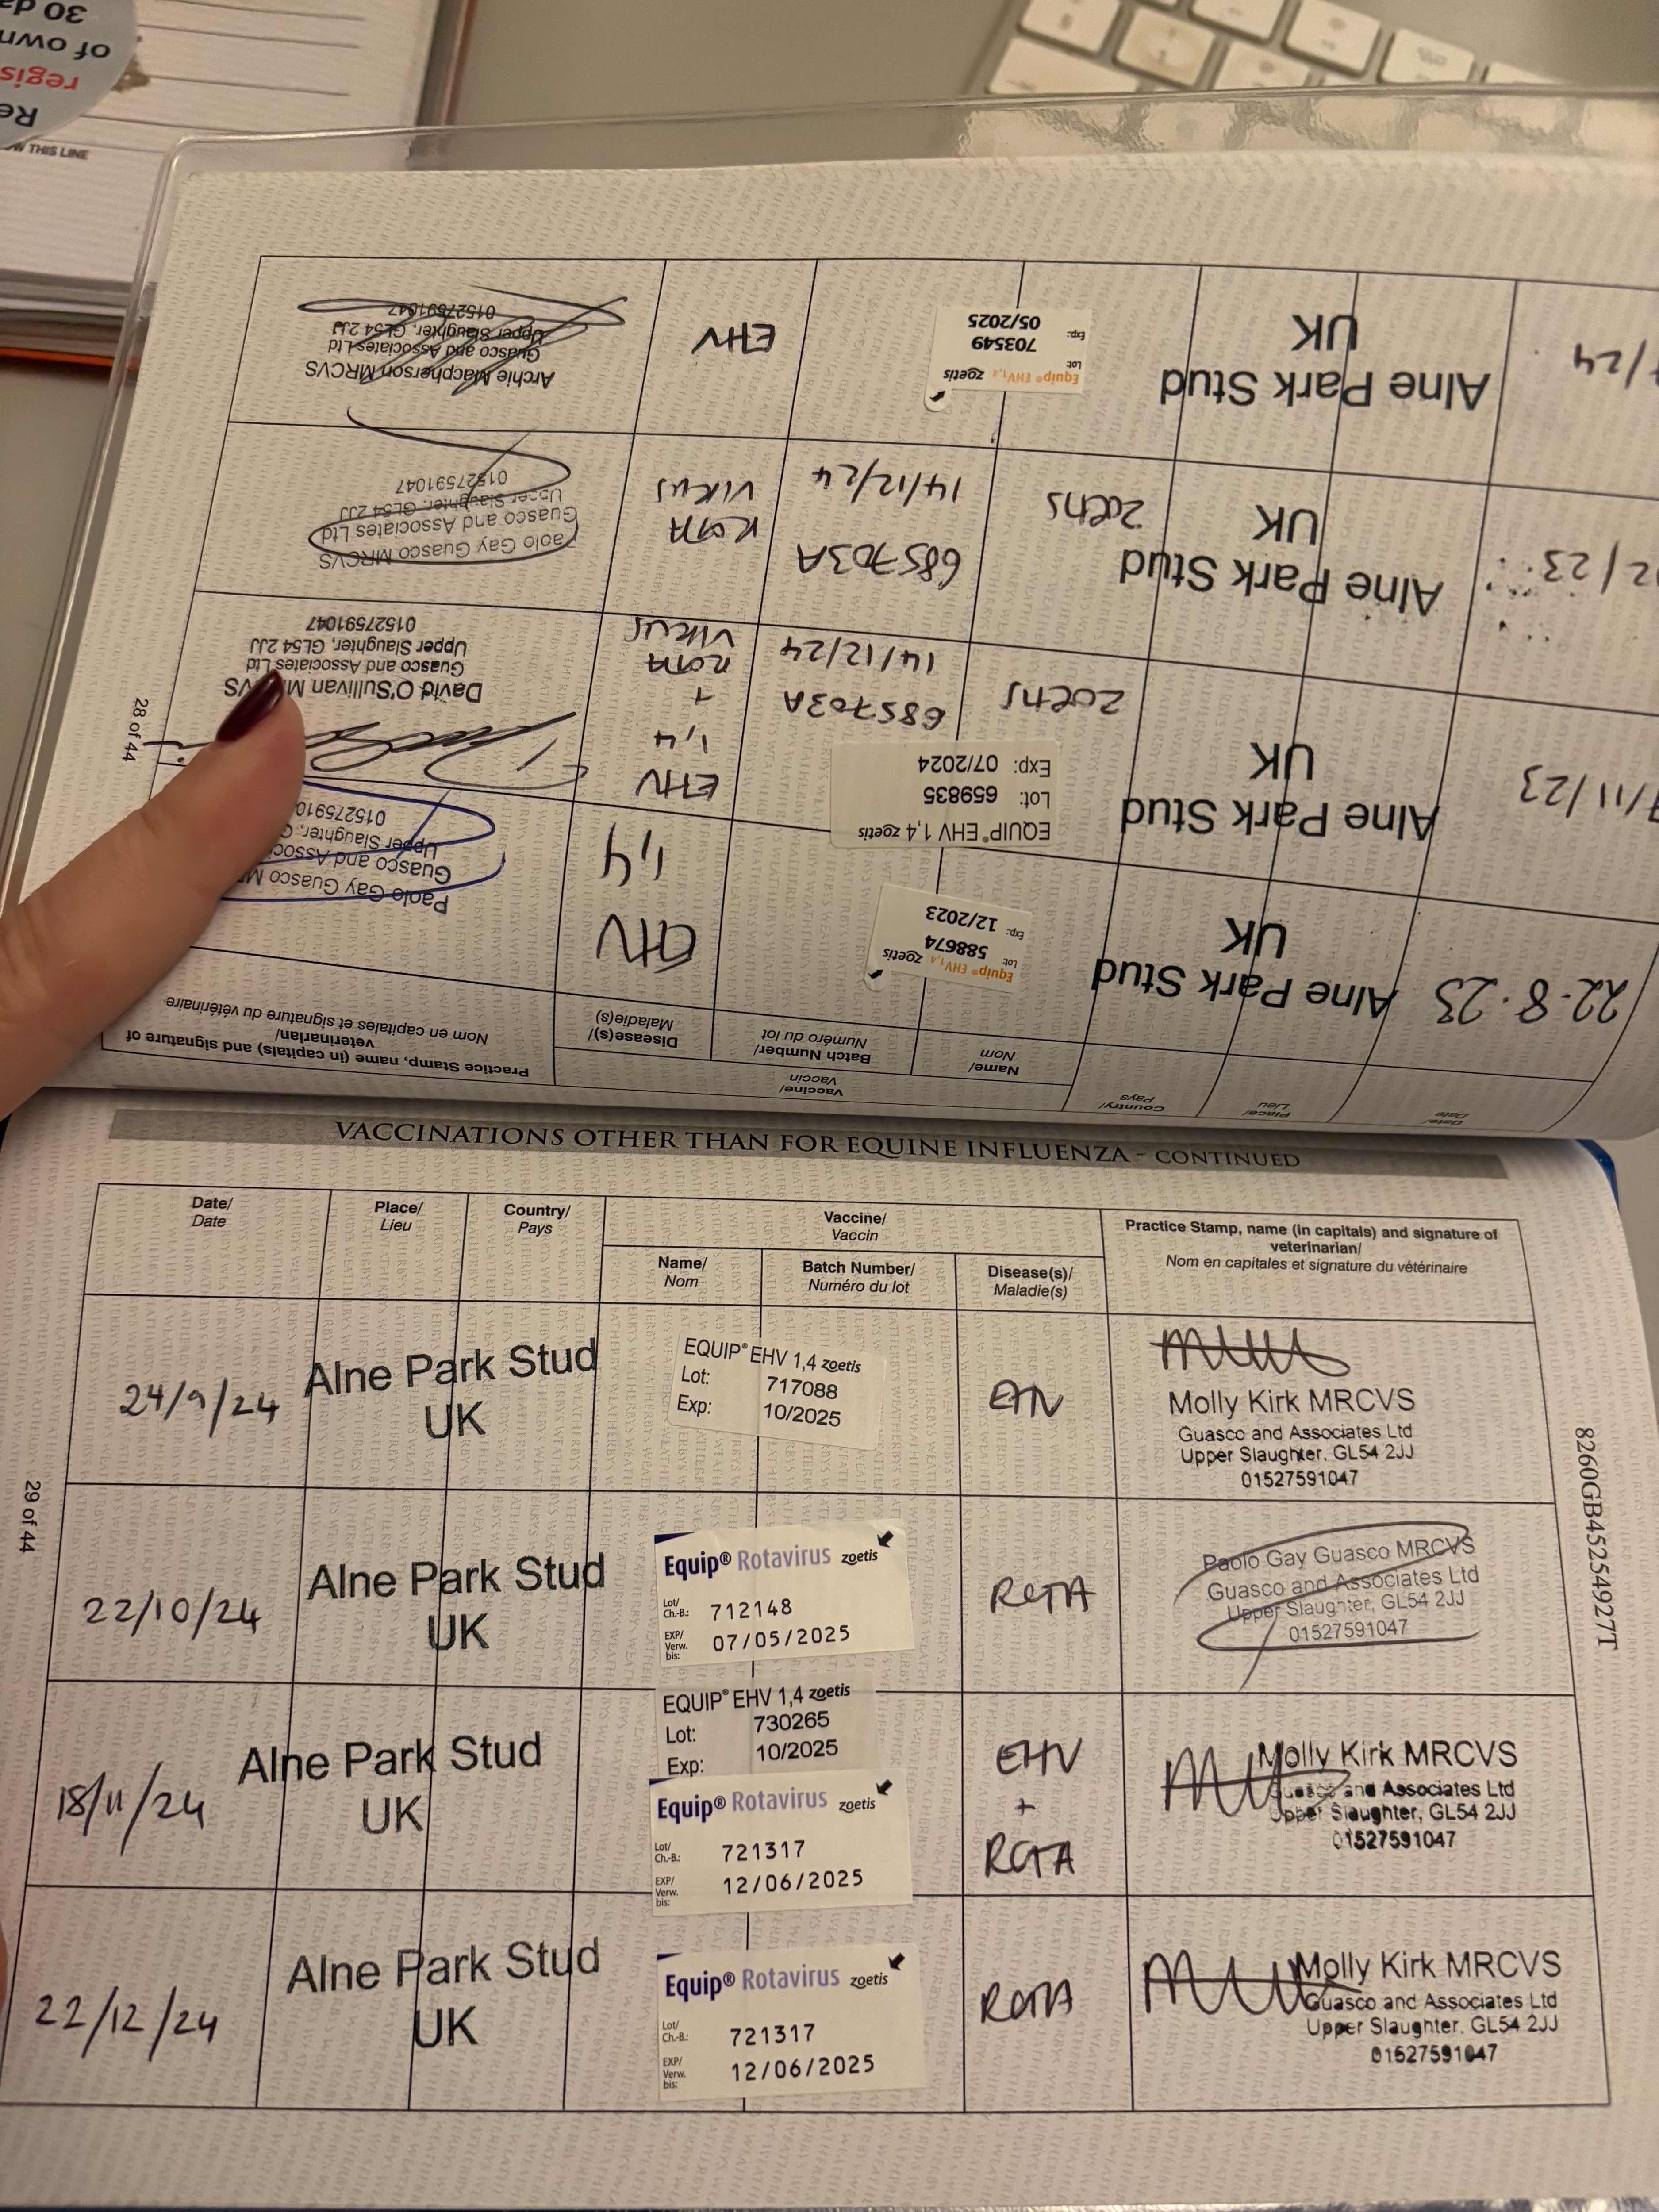 30 da
of own
regis
Re
W THIS LINE
28 of 44
Date/
Date
Place/
Lieu
Country/
Pays
Vaccine/
Vaccin
Name/
Nom
Batch Number/
Numéro du lot
Disease(s)/
Maladie(s)
Practice Stamp, name (in capitals) and signature of
veterinarian/
Nom en capitales et signature du vétérinaire
22.8.23
Alne Park Stud
UK
Equip® EHV1,4 zoetis
Lot: 588674
Exp: 12/2023
EHV
1,4
Paolo Gay Guasco M
Guasco and Associa
Upper Slaughter, G
015275910
7/11/23
Alne Park Stud
UK
EQUIP® EHV 1,4 zoetis
Lot: 659835
Exp: 07/2024
685703A
14/12/24
EHV
1,4
+
ROTA
VIRUS
David O'Sullivan M VS
Guasco and Associates Ltd
Upper Slaughter, GL54 2JJ
01527591047
2/23
Alne Park Stud
UK
685703A
14/12/24
ROTA
VIRUS
Paolo Gay Guasco MRCVS
Guasco and Associates Ltd
Upper Slaughter, GL54 2JJ
01527591047
/24
Alne Park Stud
UK
Equip® EHV1,4 zoetis
Lot: 703549
Exp: 05/2025
EHV
Archie Macpherson MRCVS
Guasco and Associates Ltd
Upper Slaughter, GL54 2JJ
01527591047
VACCINATIONS OTHER THAN FOR EQUINE INFLUENZA - CONTINUED
Date/
Date
Place/
Lieu
Country/
Pays
Vaccine/
Vaccin
Name/
Nom
Batch Number/
Numéro du lot
Disease(s)/
Maladie(s)
Practice Stamp, name (in capitals) and signature of
veterinarian/
Nom en capitales et signature du vétérinaire
24/9/24
Alne Park Stud
UK
EQUIP® EHV 1,4 zoetis
Lot: 717088
Exp: 10/2025
EHV
Molly Kirk MRCVS
Guasco and Associates Ltd
Upper Slaughter, GL54 2JJ
01527591047
22/10/24
Alne Park Stud
UK
Equip® Rotavirus zoetis
Lot/
Ch.-B.: 712148
EXP/
Verw.
bis: 07/05/2025
ROTA
Paolo Gay Guasco MRCVS
Guasco and Associates Ltd
Upper Slaughter, GL54 2JJ
01527591047
18/11/24
Alne Park Stud
UK
EQUIP® EHV 1,4 zoetis
Lot: 730265
Exp: 10/2025
Equip® Rotavirus zoetis
Lot/
Ch.-B.: 721317
EXP/
Verw.
bis: 12/06/2025
EHV
+
ROTA
Molly Kirk MRCVS
Guasco and Associates Ltd
Upper Slaughter, GL54 2JJ
01527591047
22/12/24
Alne Park Stud
UK
Equip® Rotavirus zoetis
Lot/
Ch.-B.: 721317
EXP/
Verw.
bis: 12/06/2025
ROTA
Molly Kirk MRCVS
Guasco and Associates Ltd
Upper Slaughter, GL54 2JJ
01527591047
29 of 44
8260GB45254927T